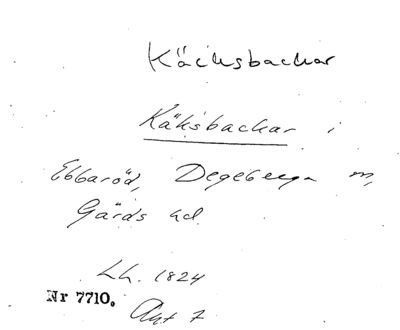 Käcksbackar
Käksbackar i
Ebbaröd, Degeberga sn,
Gärds hd.
Lh. 1824
Nr 7710.
Akt 7